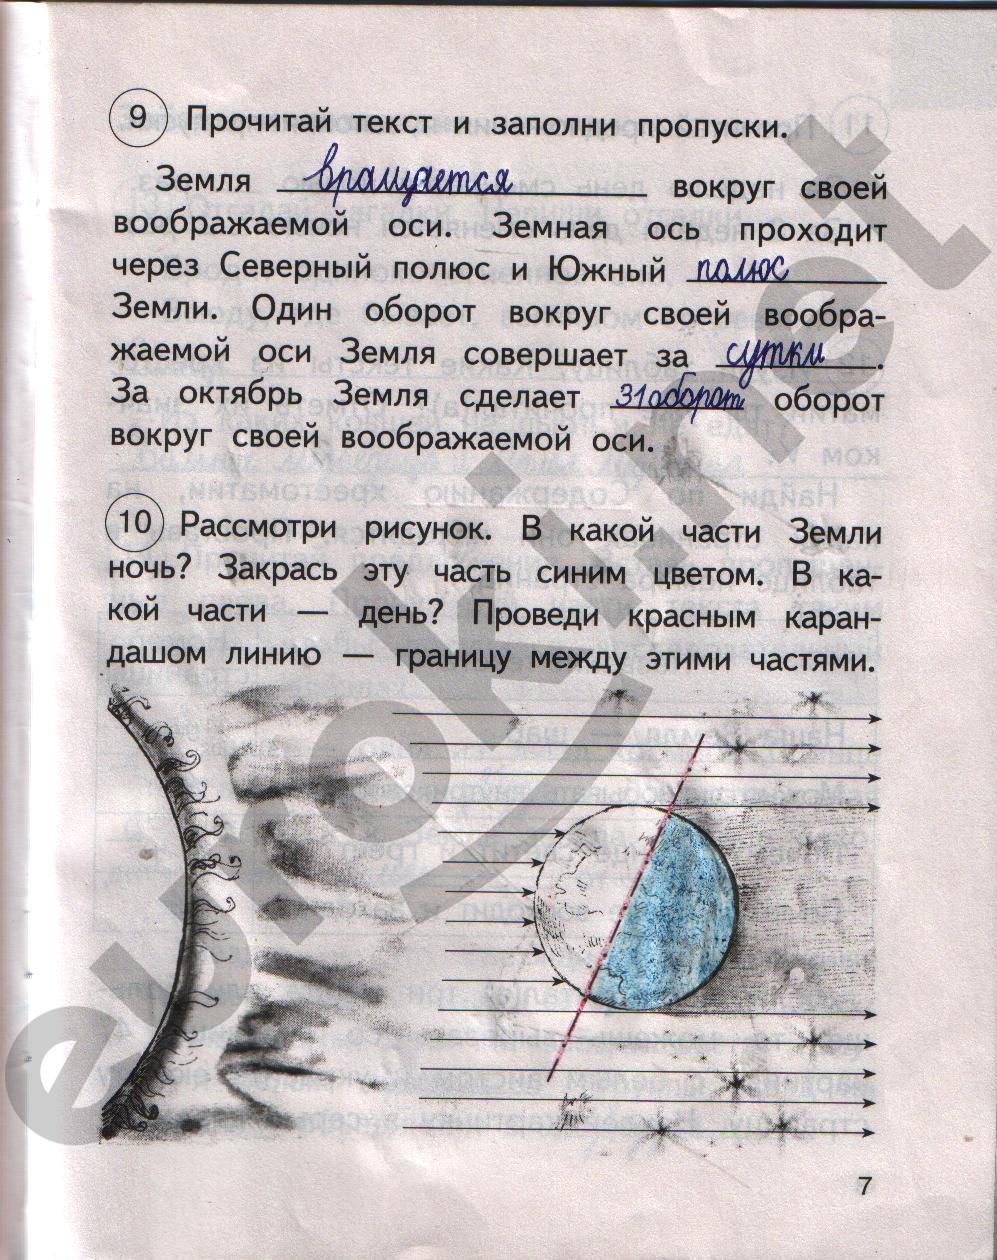 9 Прочитай текст и заполни пропуски.
Земля вращается вокруг своей
воображаемой оси. Земная ось проходит
через Северный полюс и Южный полюс
Земли. Один оборот вокруг своей вообра-
жаемой оси Земля совершает за сутки.
За октябрь Земля сделает 31 оборот оборот
вокруг своей воображаемой оси.
10 Рассмотри рисунок. В какой части Земли
ночь? Закрась эту часть синим цветом. В ка-
кой части — день? Проведи красным каран-
дашом линию — границу между этими частями.
7
euroki.net